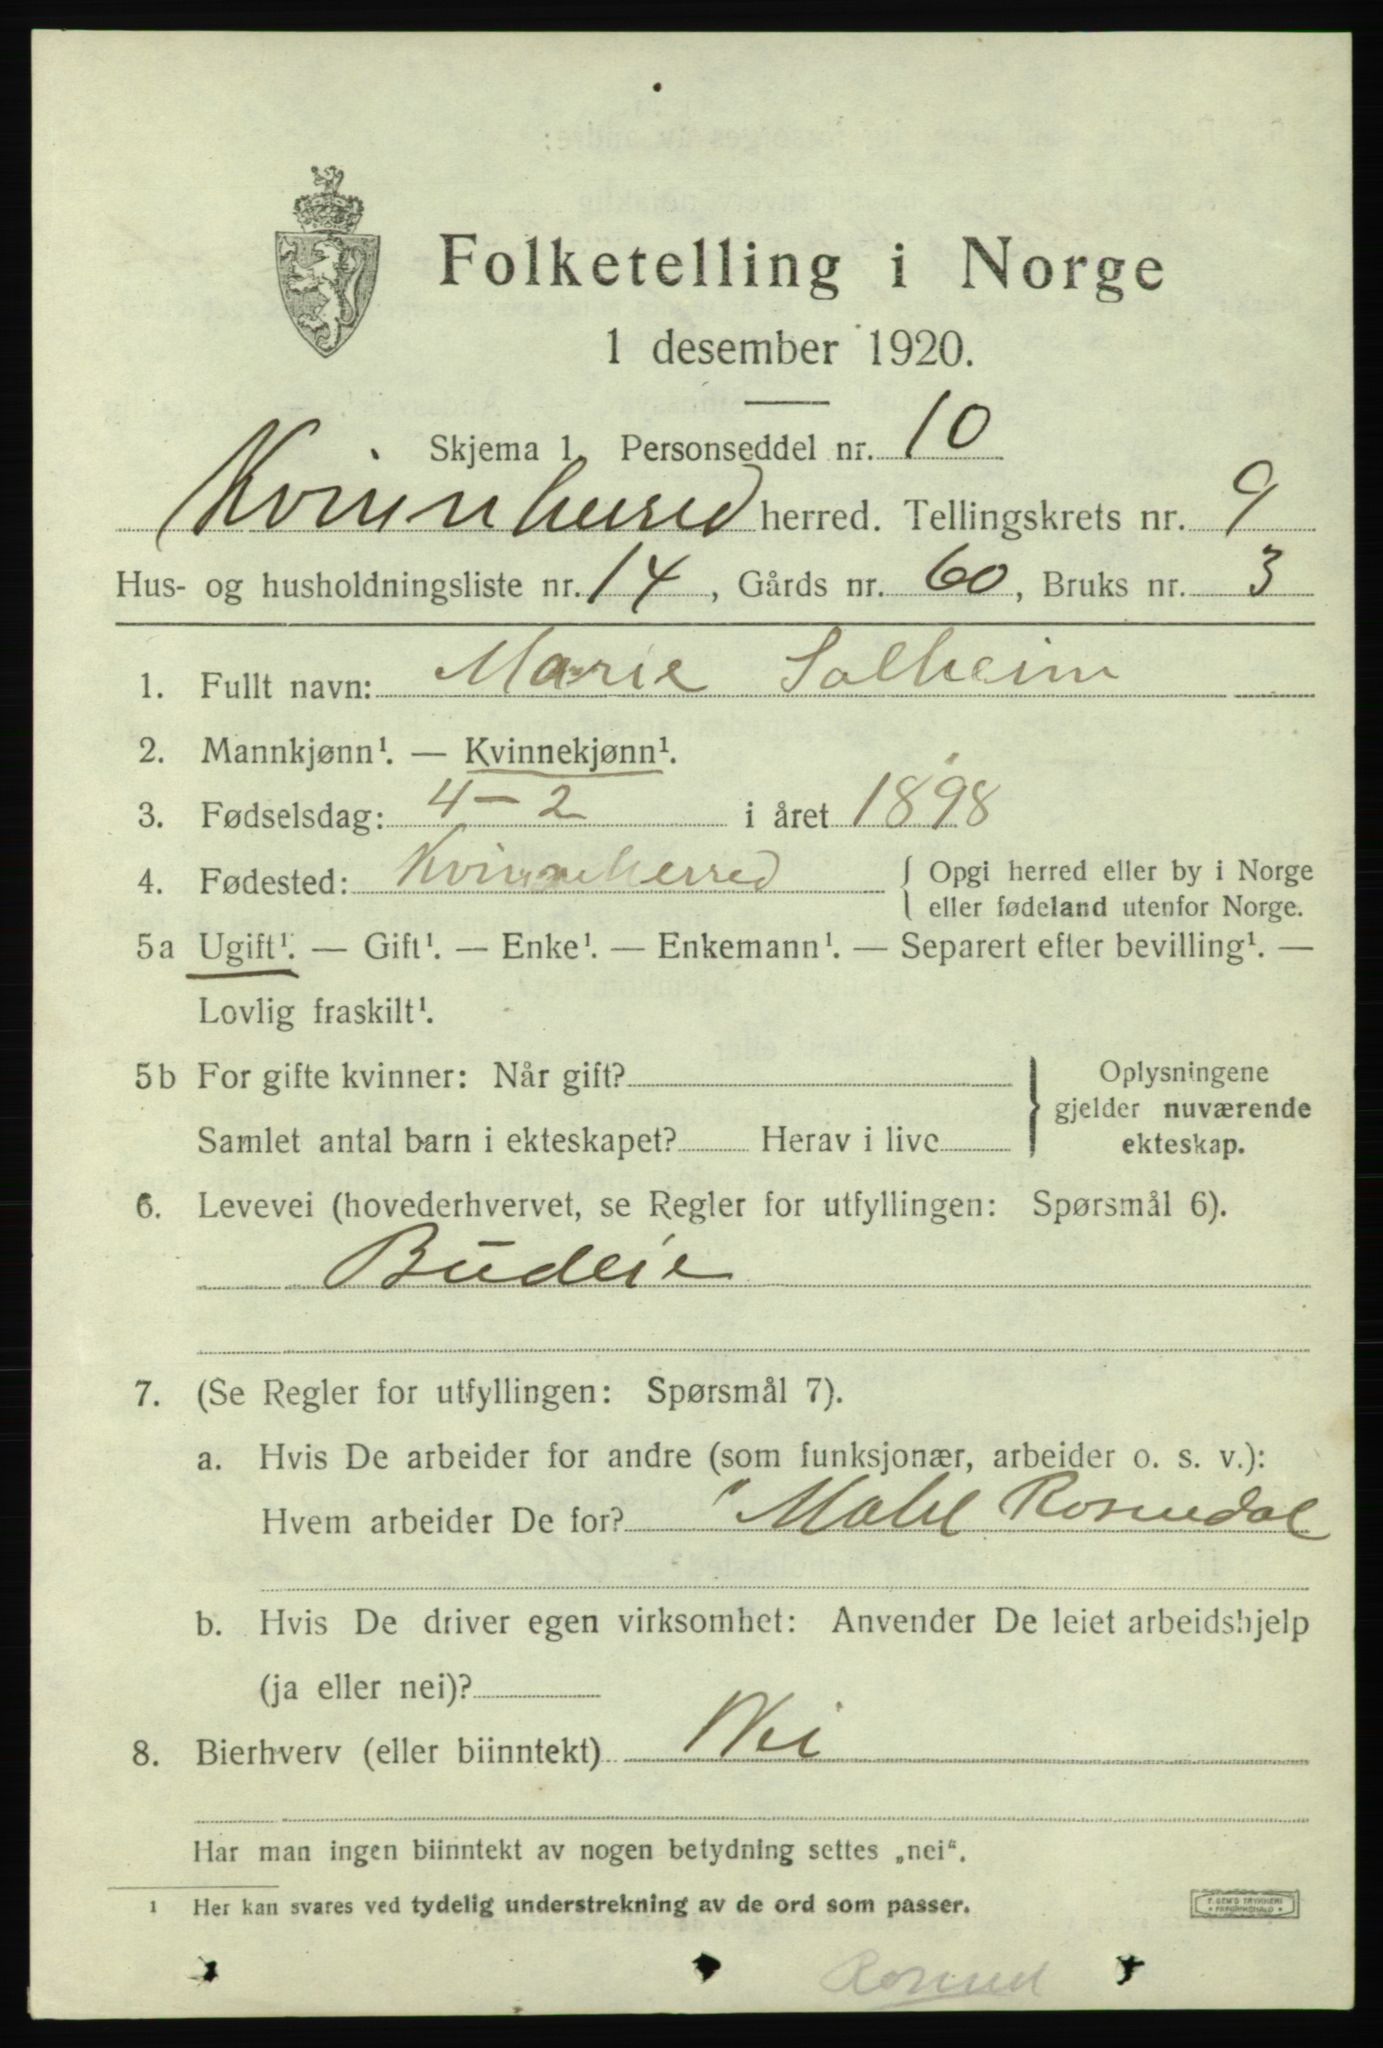 Folketelling i Norge
1 desember 1920.
Skjema 1. Personseddel nr. 10
Kvinnherred herred. Tellingskrets nr. 9
Hus- og husholdningsliste nr. 14, Gårds nr. 60, Bruks nr. 3
1. Fullt navn: Marie Solheim
2. Mannkjønn¹. — Kvinnekjønn¹.
3. Fødselsdag: 4-2 i året 1898
4. Fødested: Kvinnherred { Opgi herred eller by i Norge
eller fødeland utenfor Norge.
5a Ugift¹. — Gift¹. — Enke¹. — Enkemann¹. — Separert efter bevilling¹. —
Lovlig fraskilt¹.
5b For gifte kvinner: Når gift? } Oplysningene
gjelder nuværende
Samlet antal barn i ekteskapet? Herav i live
ekteskap.
6. Levevei (hovederhvervet, se Regler for utfyllingen: Spørsmål 6).
Budeie
7. (Se Regler for utfyllingen: Spørsmål 7).
a. Hvis De arbeider for andre (som funksjonær, arbeider o. s. v.):
Hvem arbeider De for? Rosendal
b. Hvis De driver egen virksomhet: Anvender De leiet arbeidshjelp
(ja eller nei)?
8. Bierhverv (eller biinntekt) Nei
Har man ingen biinntekt av nogen betydning settes „nei“.
¹ Her kan svares ved tydelig understrekning av de ord som passer.